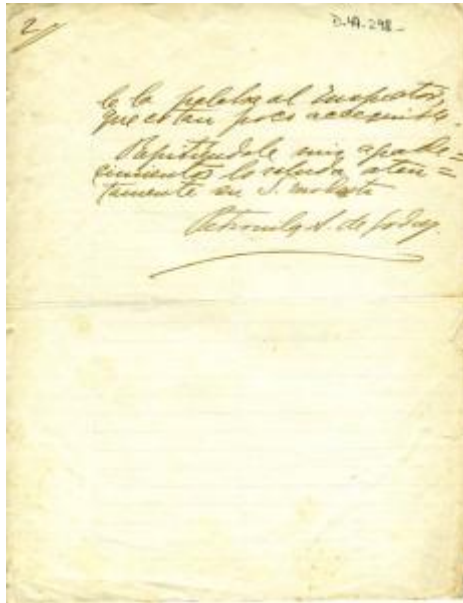 2/
D-4A-298-
le la palabra al Inspector,
que es tan poco accequible.
Repitiéndole mis agrade=
cimientos la saluda aten=
tamente su S.
Petronila S. de Godoy.